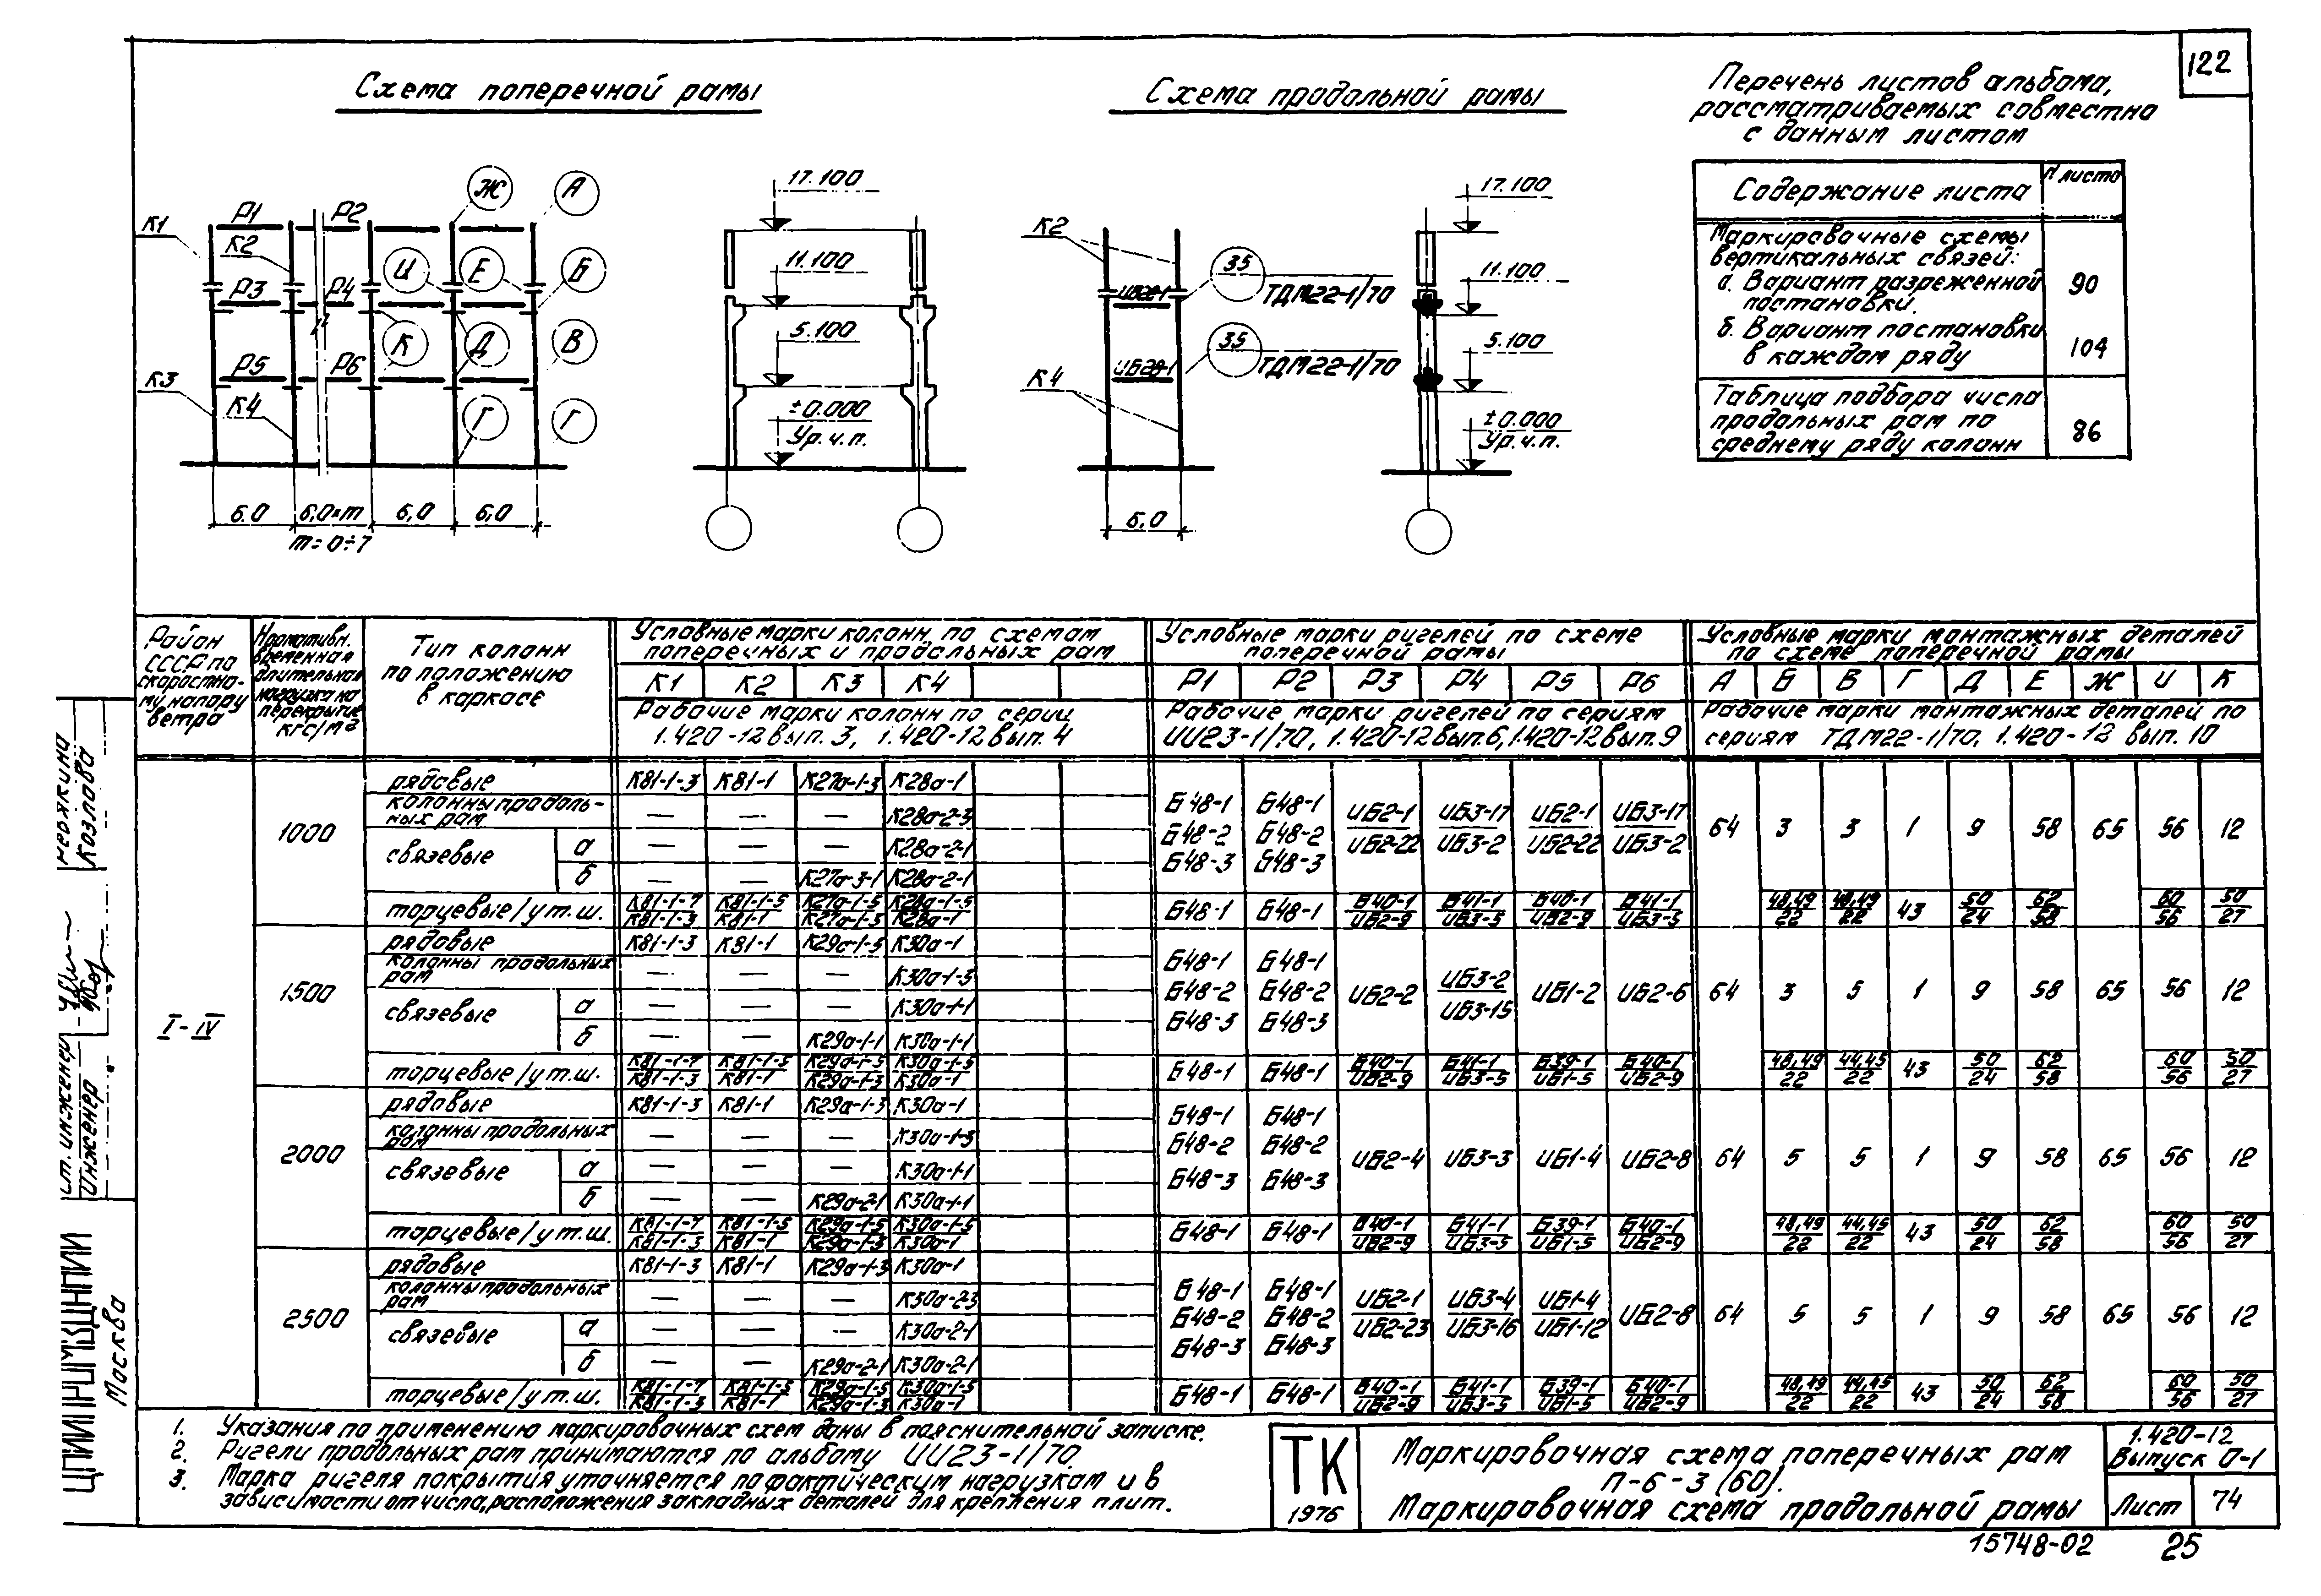 122
Схема поперечной рамы
Схема продольной рамы
Перечень листов альбома,
рассматриваемых совместно
с данным листом
Содержание листа
N листа
Маркировочные схемы
вертикальных связей:
а. Вариант разреженной
постановки.
90
б. Вариант постановки
в каждом ряду
104
Таблица подбора числа
продольных рам по
среднему ряду колонн
86
К1 Р1 К2 Р2 Ж А
Р3 Р4 И Е Б
К3 Р5 Р6 К Д В
К4 Г Г
6.0 6,0×m 6,0 6,0
m=0÷7
17.100
11.100
5.100
±0.000
Ур.ч.п.
К2
35
ТДМ22-1/70
К4
35
ТДМ22-1/70
6,0
17.100
11.100
5.100
±0.000
Ур.ч.п.
Район
СССР по
скоростно-
му напору
ветра
Нормативн.
временная
длительная
нагрузка на
перекрытие
кгс/м²
Тип колонн
по положению
в каркасе
Условные марки колонн, по схемам
поперечных и продольных рам
К1 К2 К3 К4
Рабочие марки колонн по серии
1.420-12 вып. 3, 1.420-12 вып. 4
Условные марки ригелей по схеме
поперечной рамы
Р1 Р2 Р3 Р4 Р5 Р6
Рабочие марки ригелей по сериям
ИИ23-1/70, 1.420-12 вып.6, 1.420-12 вып.9
Условные марки монтажных деталей
по схеме поперечной рамы
А Б В Г Д Е Ж И К
Рабочие марки монтажных деталей по
сериям ТДМ22-1/70, 1.420-12 вып. 10
I-IV
1000
рядовые К81-1-3 К81-1 К27а-1-3 К28а-1
колонны продоль-
ных рам — — — К28а-2-3
связевые а — — — К28а-2-1
б — — К27а-3-1 К28а-2-1
Б48-1 Б48-1 ИБ2-1 ИБ3-17 ИБ2-1 ИБ3-17
Б48-2 Б48-2 ИБ2-22 ИБ3-2 ИБ2-22 ИБ3-2
Б48-3 Б48-3
64 3 3 1 9 58 65 56 12
торцевые/у т.ш. К81-1-7 К81-1-5 К27а-1-5 К28а-1-5
К81-1-3 К81-1 К27а-1-3 К28а-1
Б48-1 Б48-1 Б40-1 Б41-1 Б40-1 Б41-1
ИБ2-9 ИБ3-5 ИБ2-9 ИБ3-5
48,49 48,49 43 50 62 60 50
22 22 24 58 56 27
1500
рядовые К81-1-3 К81-1 К29а-1-3 К30а-1
колонны продольных
рам — — — К30а-1-3
связевые а — — — К30а-1-1
б — — К29а-1-1 К30а-1-1
Б48-1 Б48-1 ИБ3-2
Б48-2 Б48-2 ИБ2-2 ИБ3-15 ИБ1-2 ИБ2-6
Б48-3 Б48-3
64 3 5 1 9 58 65 56 12
торцевые/у т.ш. К81-1-7 К81-1-5 К29а-1-5 К30а-1-5
К81-1-3 К81-1 К29а-1-3 К30а-1
Б48-1 Б48-1 Б40-1 Б41-1 Б39-1 Б40-1
ИБ2-9 ИБ3-5 ИБ1-5 ИБ2-9
48,49 44,45 43 50 62 60 50
22 22 24 58 56 27
2000
рядовые К81-1-3 К81-1 К29а-1-3 К30а-1
колонны продольных
рам — — — К30а-1-3
связевые а — — — К30а-1-1
б — — К29а-2-1 К30а-1-1
Б48-1 Б48-1
Б48-2 Б48-2 ИБ2-4 ИБ3-3 ИБ1-4 ИБ2-8
Б48-3 Б48-3
64 5 5 1 9 58 65 56 12
торцевые/у т.ш. К81-1-7 К81-1-5 К29а-1-5 К30а-1-5
К81-1-3 К81-1 К29а-1-3 К30а-1
Б48-1 Б48-1 Б40-1 Б41-1 Б39-1 Б40-1
ИБ2-9 ИБ3-5 ИБ1-5 ИБ2-9
48,49 44,45 43 50 62 60 50
22 22 24 58 56 27
2500
рядовые К81-1-3 К81-1 К29а-1-3 К30а-1
колонны продольных
рам — — — К30а-2-3
связевые а — — — К30а-2-1
б — — К29а-2-1 К30а-2-1
Б48-1 Б48-1 ИБ2-1 ИБ3-4 ИБ1-4
Б48-2 Б48-2 ИБ2-23 ИБ3-16 ИБ1-12 ИБ2-8
Б48-3 Б48-3
64 5 5 1 9 58 65 56 12
торцевые/у т.ш. К81-1-7 К81-1-5 К29а-1-5 К30а-1-5
К81-1-3 К81-1 К29а-1-3 К30а-1
Б48-1 Б48-1 Б40-1 Б41-1 Б39-1 Б40-1
ИБ2-9 ИБ3-5 ИБ1-5 ИБ2-9
48,49 44,45 43 50 62 60 50
22 22 24 58 56 27
1. Указания по применению маркировочных схем даны в пояснительной записке.
2. Ригели продольных рам принимаются по альбому ИИ23-1/70.
3. Марка ригеля покрытия уточняется по фактическим нагрузкам и в
зависимости от числа, расположения закладных деталей для крепления плит.
ТК
1976
Маркировочная схема поперечных рам
П-6-3 (60).
Маркировочная схема продольной рамы
1.420-12
Выпуск 0-1
Лист 74
15748-02 25
ЦНИИПРОМЗДАНИЙ
Москва
ст. инженер
инженер
Козлова